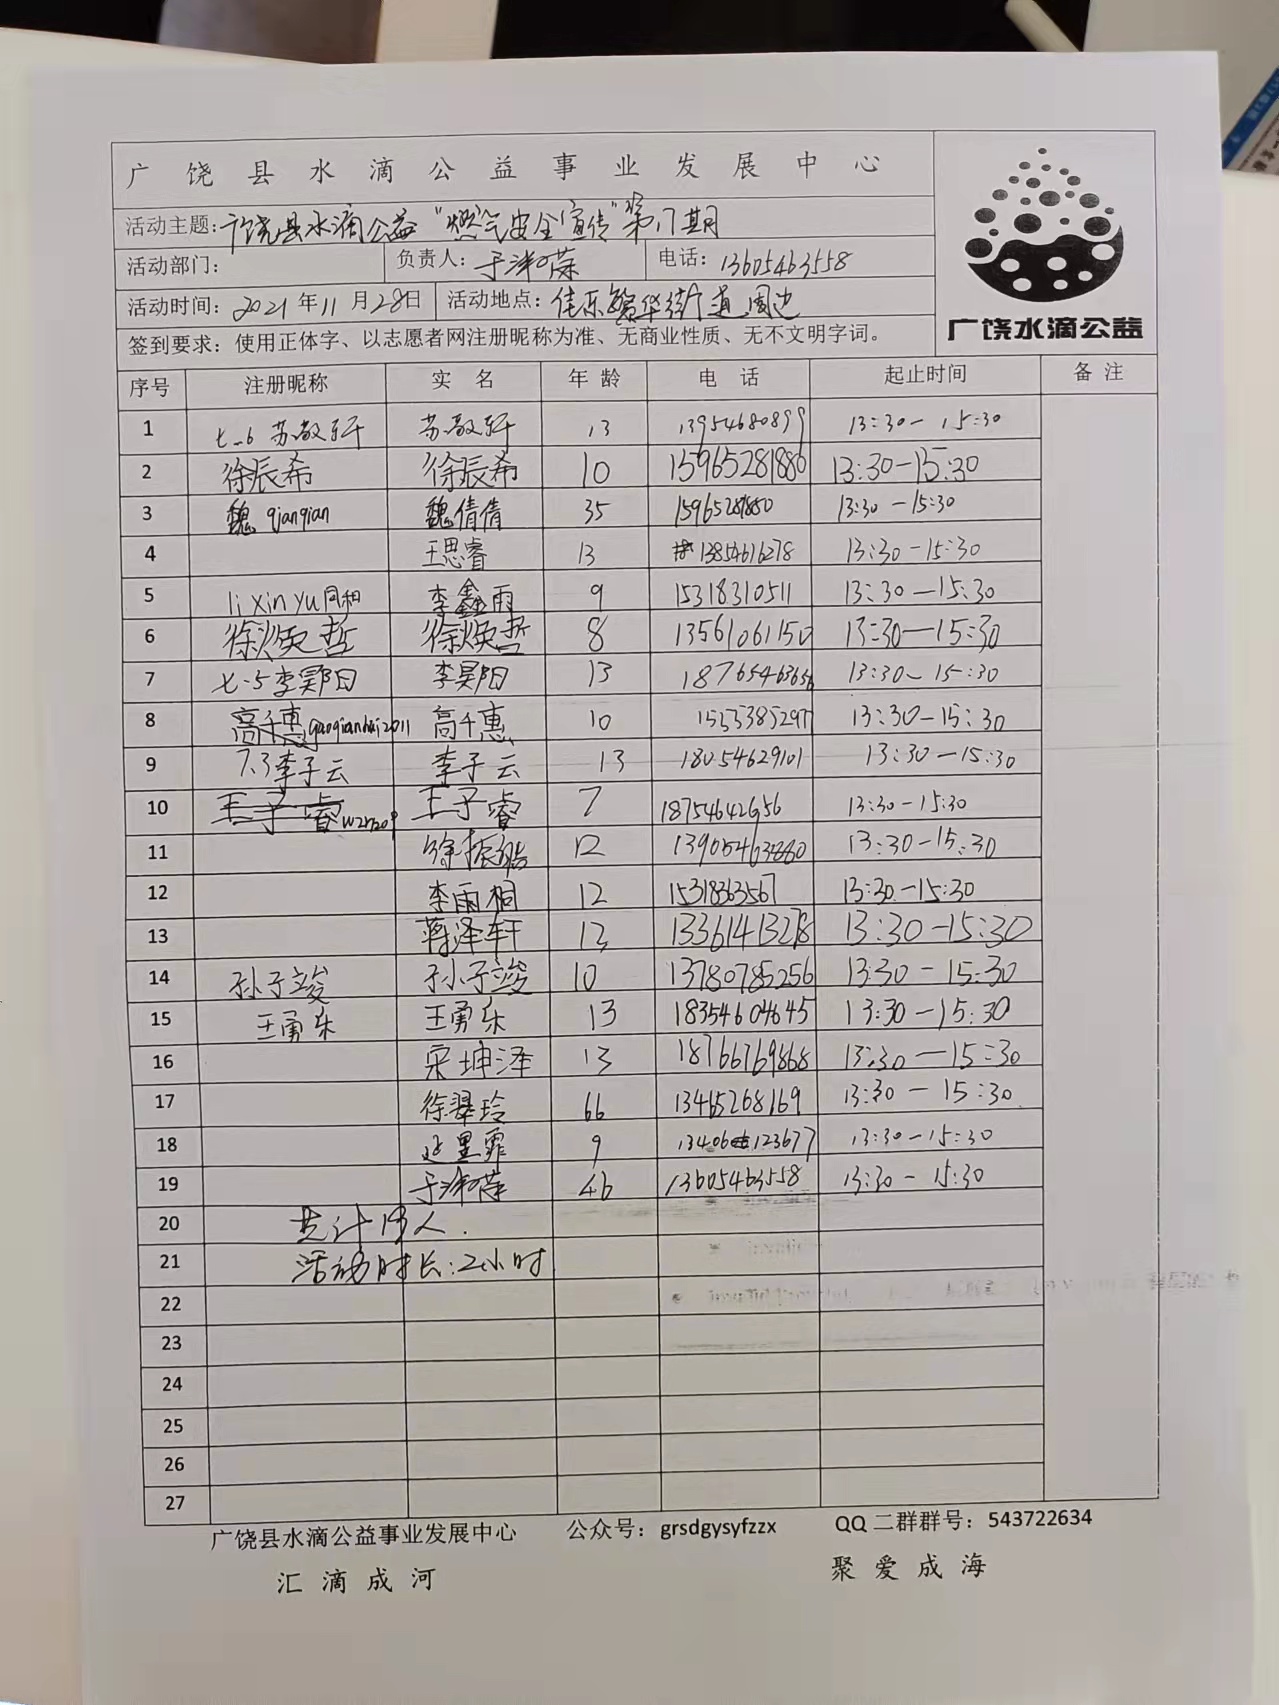 广饶县水滴公益事业发展中心
活动主题:广饶县水滴公益“燃气安全宣传”第17期
活动部门: 负责人: 于 电话: 13605463558
活动时间: 2021年11月28日 活动地点: 佳乐繁华街道周边
广饶水滴公益
签到要求: 使用正体字、以志愿者网注册昵称为准、无商业性质、无不文明字词。
序号 注册昵称 实 名 年 龄 电 话 起止时间 备 注
1 七-6 苏敬轩 苏敬轩 13 13954680899 13:30-15:30
2 徐辰希 徐辰希 10 15965281886 13:30-15:30
3 魏 qianqian 魏倩倩 35 13:30-15:30
4 王思睿 13 13854616278 13:30-15:30
5 li xin yu同和 李鑫雨 9 15318310511 13:30-15:30
6 徐焕哲 徐焕哲 8 13561061150 13:30-15:30
7 七.5李昊阳 李昊阳 13 18765463656 13:30-15:30
8 高千惠 10 13:30-15:30
9 7.3李子云 李子云 13 18054629101 13:30-15:30
10 王子睿 王子睿 7 13:30-15:30
11 徐振皓 12 13:30-15:30
12 李雨桐 12 15318363567 13:30-15:30
13 蒋泽轩 13 13361413278 13:30-15:30
14 孙子竣 孙子竣 10 13780785256 13:30-15:30
15 王勇乐 王勇乐 13 18354604645 13:30-15:30
16 宋坤泽 13 18766769868 13:30-15:30
17 徐翠玲 66 13465268169 13:30-15:30
18 9 13:30-15:30
19 于 46 13605463558 13:30-15:30
20 共计19人.
21 活动时长:2小时
22
23
24
25
26
27
广饶县水滴公益事业发展中心 公众号: grsdgysyfzzx QQ二群群号: 543722634
汇滴成河 聚爱成海